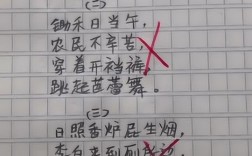 (二)
锄禾日当午,
农民不辛苦,
穿着开裆裤,
跳起芭蕾舞。
(三)
日照香炉屁生烟,
李白来到